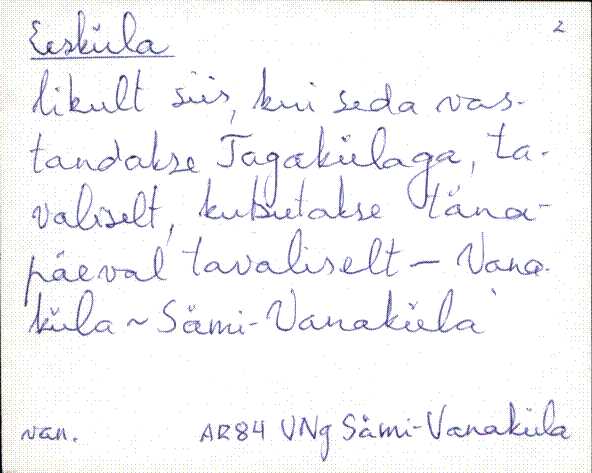 Eesküla 2
likult siis, kui seda vas-
tandakse Tagakülaga, ta-
valiselt, kutsutakse täna-
päeval tavaliselt – Vana-
küla ~ Sämi-Vanaküla
van. AR84 VNg Sämi-Vanaküla